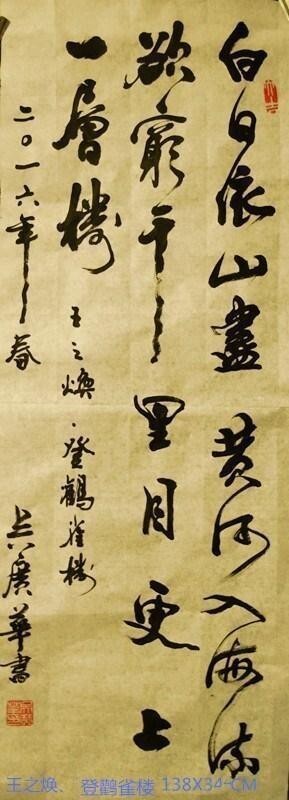 白日依山盡黄河入海流
欲窮千里目更上
一層樓 王之焕·登鸛雀樓
二〇一六年春 吴廣華書
王之焕、登鹳雀楼 138X34-CM